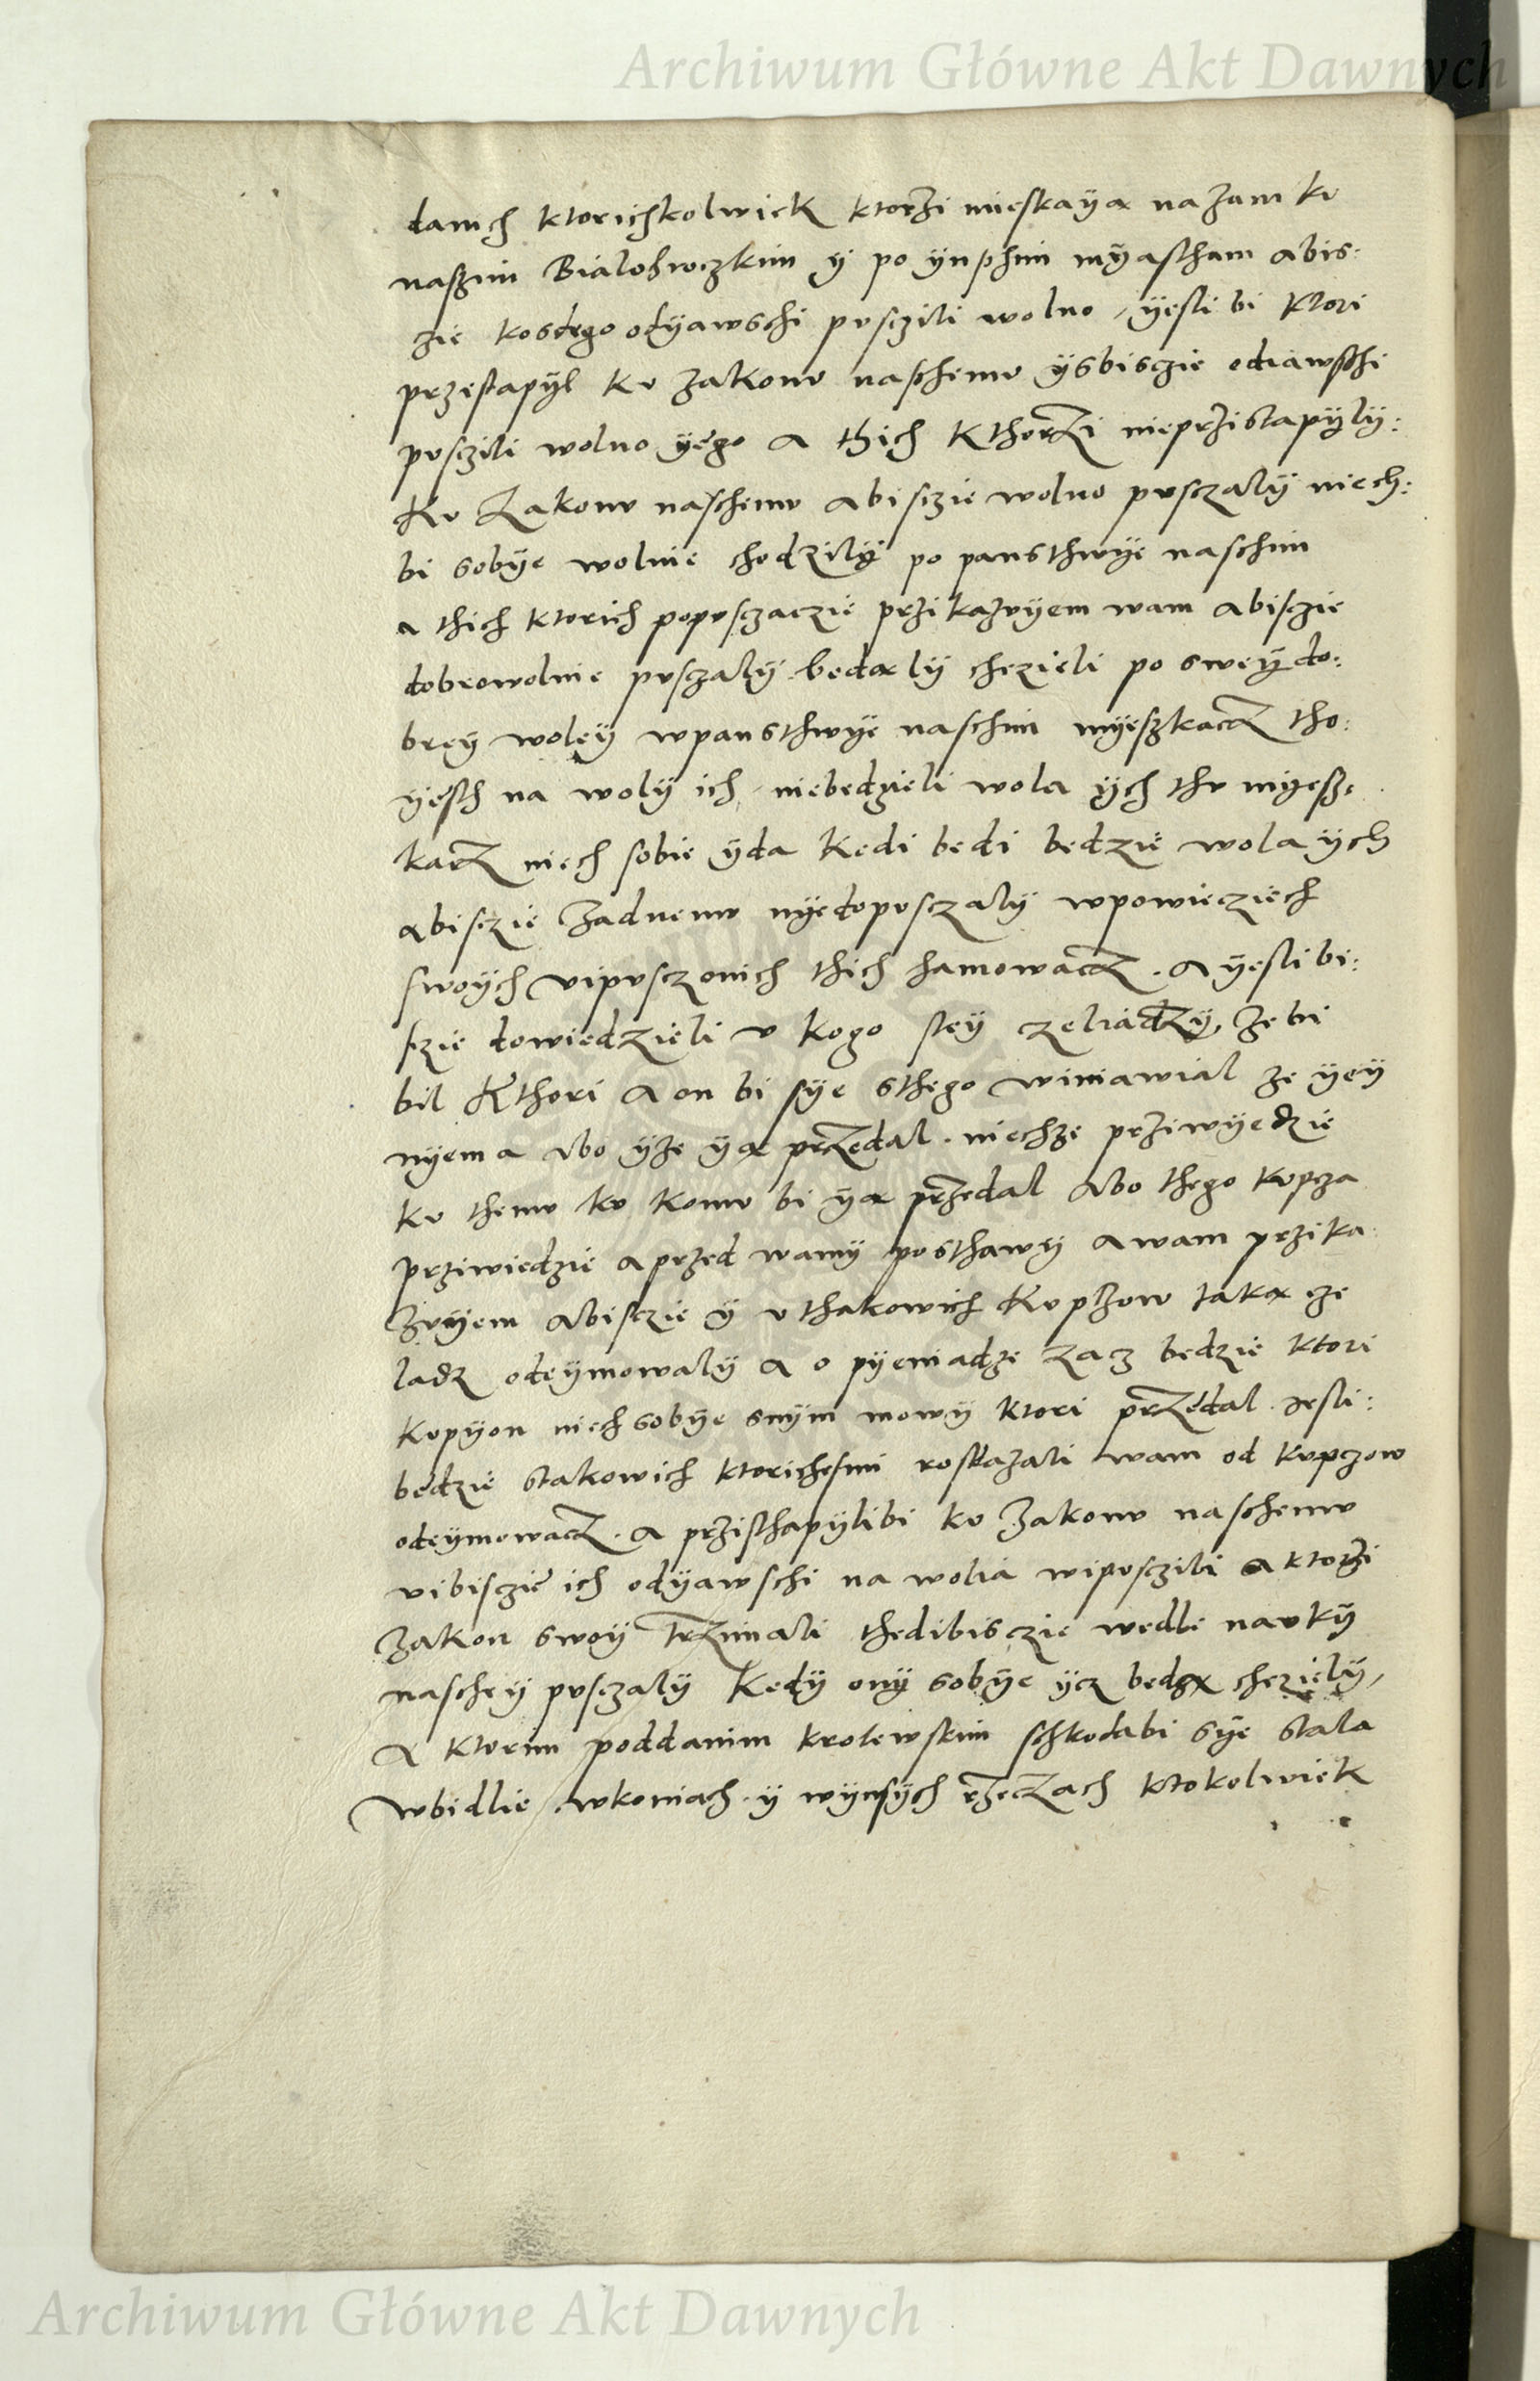 Archiwum Główne Akt Dawnych
danich ktorichkolwiek ktorzi mieskaya na zamkv
naszim Bialohroczkim y po ynszim myascham abis:
zie kosdego odyawschi pvsczili wolno, yesli bi ktori
przestapyl kv zakonv naschemv ysbisczie odiawschi
pvsczili wolno yego a thich kthorzi nieprzistapyly:
kv zakonv naschemv abisczie wolno pvsczaly niech:
bi sobye wolnie chodzily po pansthwye naschim
a thich ktorich popvsczaczie przikazvyem wam abisczie
dobrowolnie pvsczaly beda ly chczieli po swey do:
brey woley wpansthwye naschim myeszkacz tho:
yesth na woly ich, niebedzieli wola ych thv myesz:
kacz niech sobie yda kedi bedi bedzie wola ych
abisczie zadnemv nyedopvsczaly wpowiecziech
swoych vipvsczonich thich hamowacz. A yesli bi:
sczie dowiedzieli v kogo stey czeliadzy, zebi
bil kthori a on bi sye sthego winiawial ze yey
nyema abo yze ya przedal. niechze prziwyedzie
kv themv kv komv bi ya przedal abo thego kvpcza
prziwiedzie a przed wamy posthawy a wam przika
zvyem abisczie y v thakowich kvpczow taka cze
ladz odeymowaly a o pyeniadze zacz bedzie ktori
kopyon niech sobye snym mowy ktori przedal. jesli:
bedzie stakowich ktorichesmi roskazali wam od kvpczow
odeymowacz. a przisthapylibi kv zakonv naschemv
vibisczie ich odyawschi na wolia wipvsczili a ktorzi
zakon swoy trzimali thedibisczie wedle navky
naschey pvsczaly kedy ony sobye ycz beda chcziely,
A ktorim poddanim krolewskim schkodabi sye stala
wbidlie, wkoniach. y wynsych rzeczach ktokolwiek
Archiwum Główne Akt Dawnych